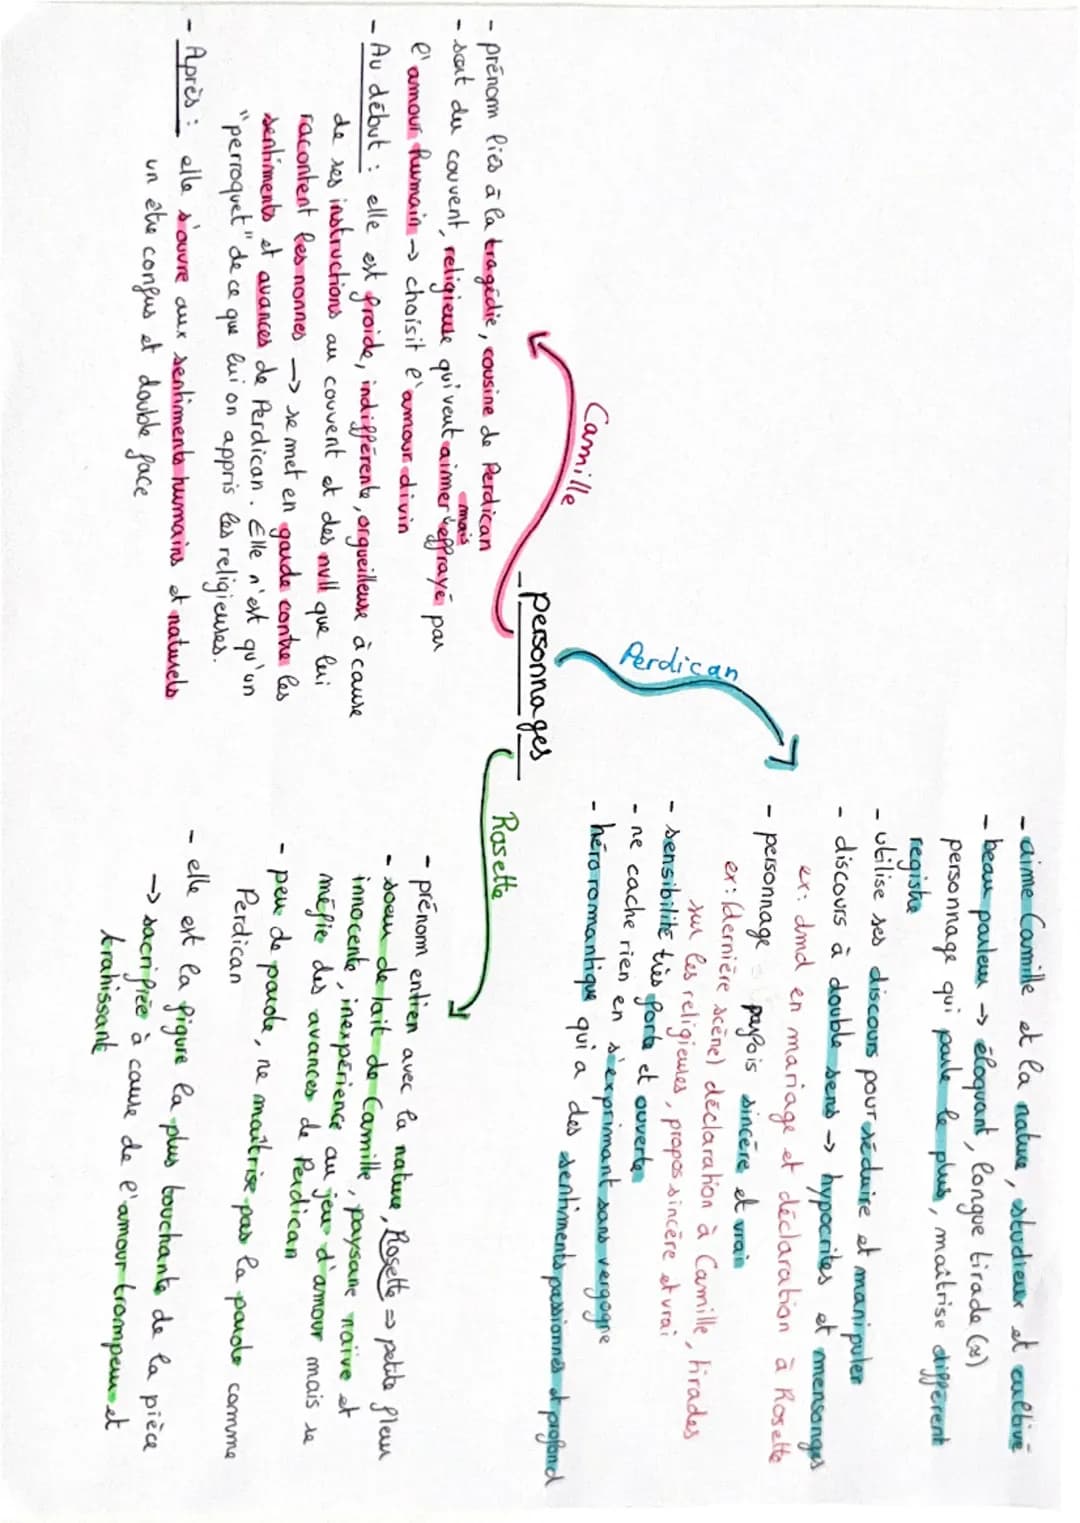 personnages
Camille
- prénom liés à la tragédie, cousine de Perdican
- sort du couvent, religieuse qui veut aimer mais effrayé par
l'amour humain → choisit l'amour divin
- Au début : elle est froide, indifférente, orgueilleuse à cause
de ses instructions au couvent et des null que lui
racontent les nonnes → se met en garde contre les
sentiments et avances de Perdican. Elle n'est qu'un
"perroquet" de ce que lui on appris les religieuses.
- Après : elle s'ouvre aux sentiments humains et naturels
un être confus et double face
Perdican
- aime Camille et la nature, studieux et cultivé
- beau parleur → éloquant, longue tirade (x)
personnage qui parle le plus, maîtrise différent
registre
- utilise ses discours pour séduire et manipuler
- discours à double sens → hypocrites et mensonges
ex: dmd en mariage et déclaration à Rosette
- personnage parfois sincère et vrai
ex: (dernière scène) déclaration à Camille, tirades
sul les religieuses, propos sincère et vrai
- sensibilité très forte et ouverte
- ne cache rien en s'exprimant sans vergogne
- héro romantique qui a des sentiments passionnés et profond
Rosette
- prénom en lien avec la nature, Rosette => petite fleur
- soeur de lait de Camille, paysane naïve et
innocente, inexpérience au jeu d'amour mais se
méfie des avances de Perdican
- peu de parole, ne maîtrise pas la parole comme
Perdican
- elle est la figure la plus touchante de la pièce
→ sacrifiée à cause de l'amour trompeur et
trahissant